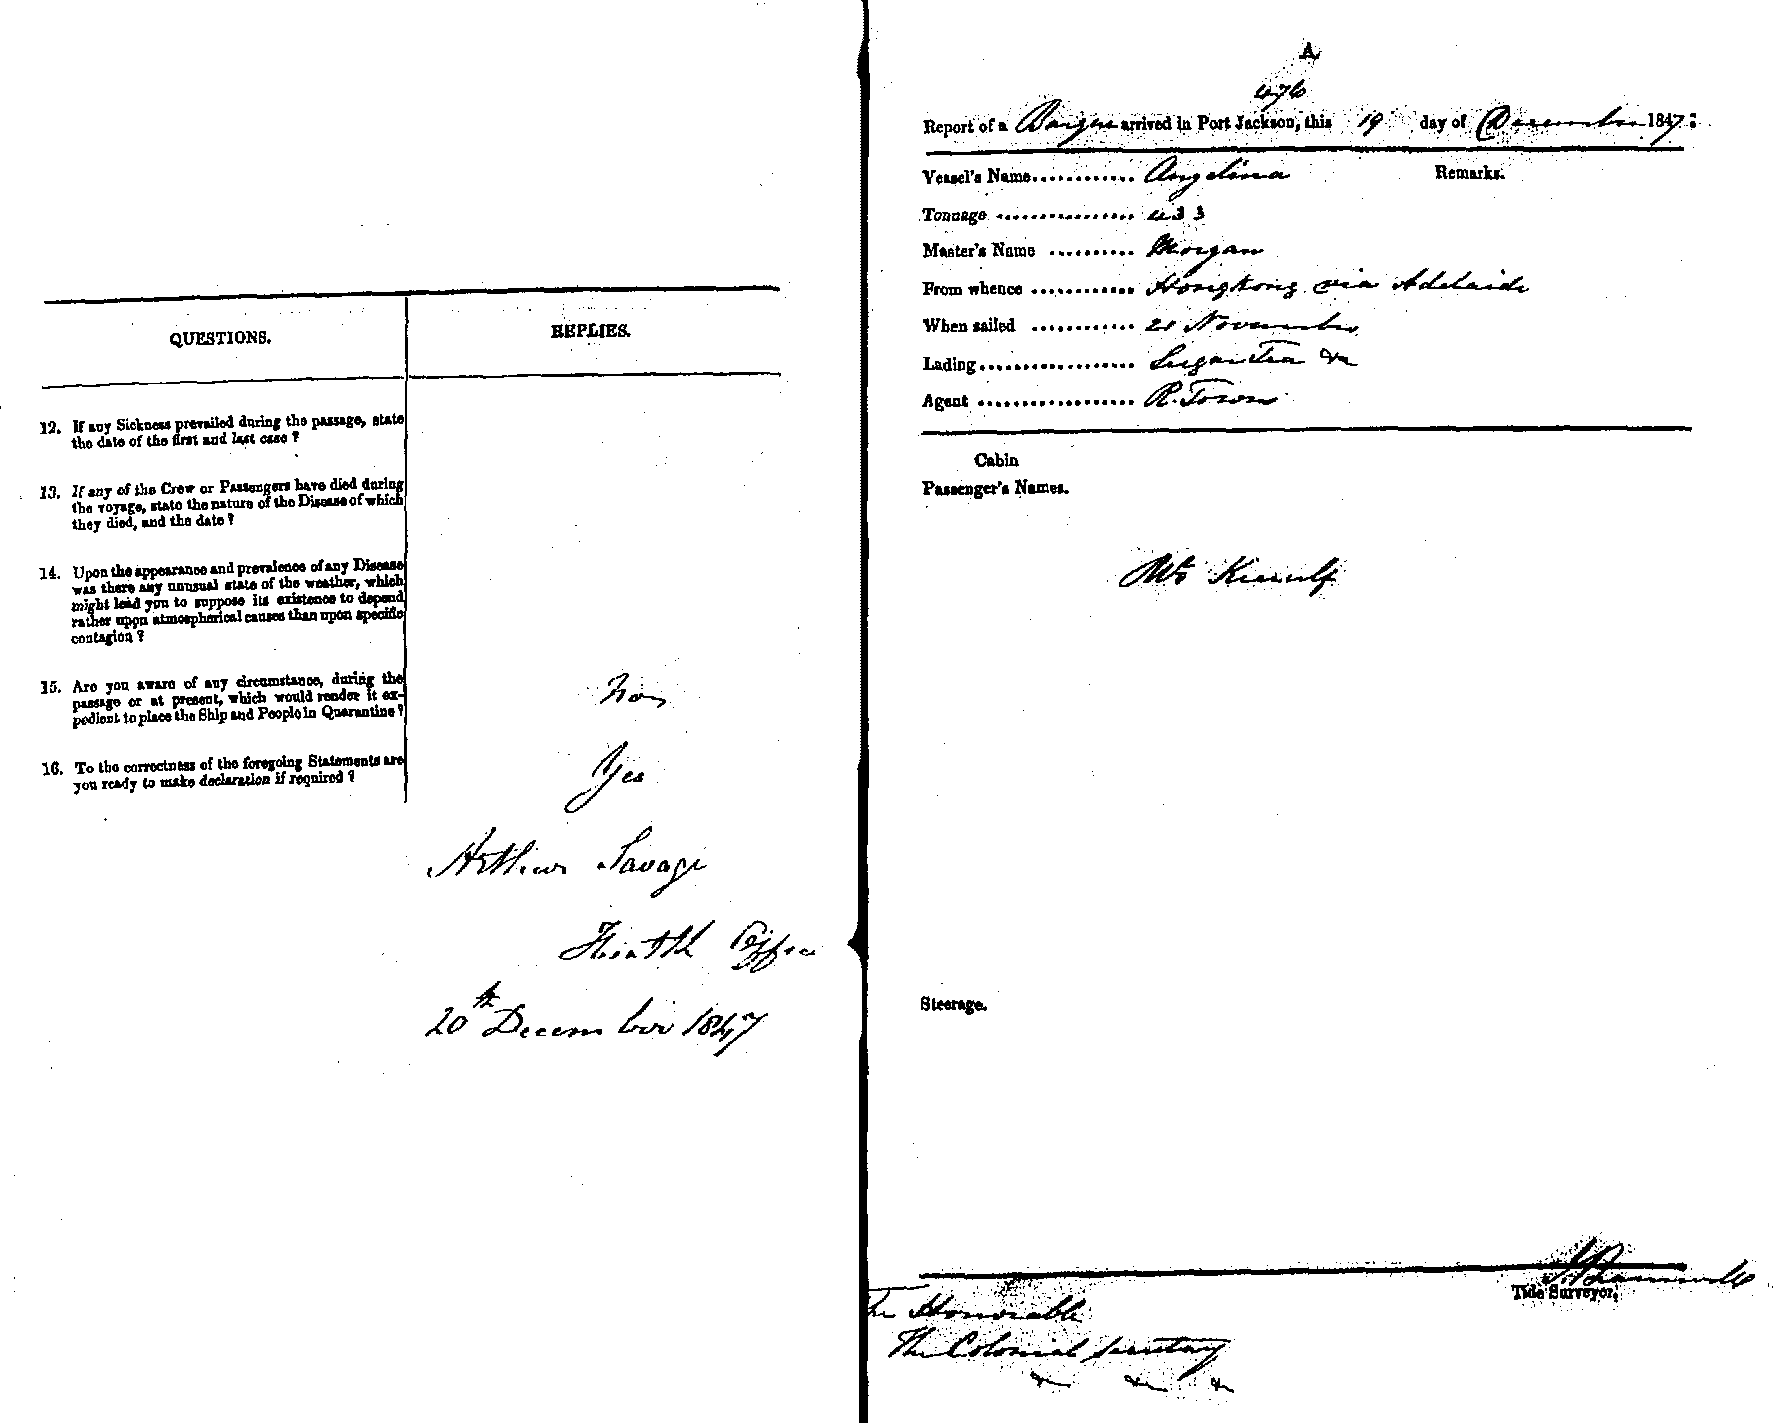 QUESTIONS.
REPLIES.
12. If any Sickness prevailed during the passage, state
the date of the first and last case ?
13. If any of the Crew or Passengers have died during
the voyage, state the nature of the Disease of which
they died, and the date ?
14. Upon the appearance and prevalence of any Disease
was there any unusual state of the weather, which
might lead you to suppose its existence to depend
rather upon atmospherical causes than upon specific
contagion ?
15. Are you aware of any circumstance, during the
passage or at present, which would render it ex-
pedient to place the Ship and People in Quarantine ?
No
16. To the correctness of the foregoing Statements are
you ready to make declaration if required ?
Yes
Arthur Savage
Health Officer
20th December 1847
A
476
Report of a Barque arrived in Port Jackson, this 19 day of December 1847:
Vessel's Name............ Angelina
Remarks.
Tonnage ................ 433
Master's Name .......... Morgan
From whence ............ Hongkong via Adelaide
When sailed ............ 21 November
Lading.................. Sugar Tea &c
Agent .................. R. Towns
Cabin
Passenger's Names.
Steerage.
Tide Surveyor.
The Honorable
The Colonial Secretary
&c &c &c